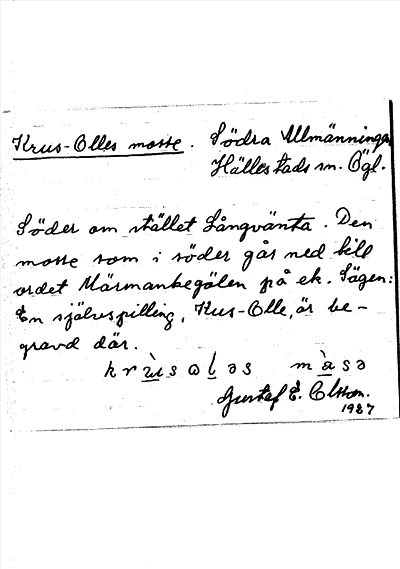 Krus-Olles mosse. Södra Allmänningen
Hällestads sn. Ögl.
Söder om stället Långvänta. Den
mosse som i söder går ned till
ordet Märmankegölen på ek. Sägen:
En självspilling, Kus-Olle, är be-
gravd där.
krùsɷləs màsə
Gustaf E. Olsson.
1927